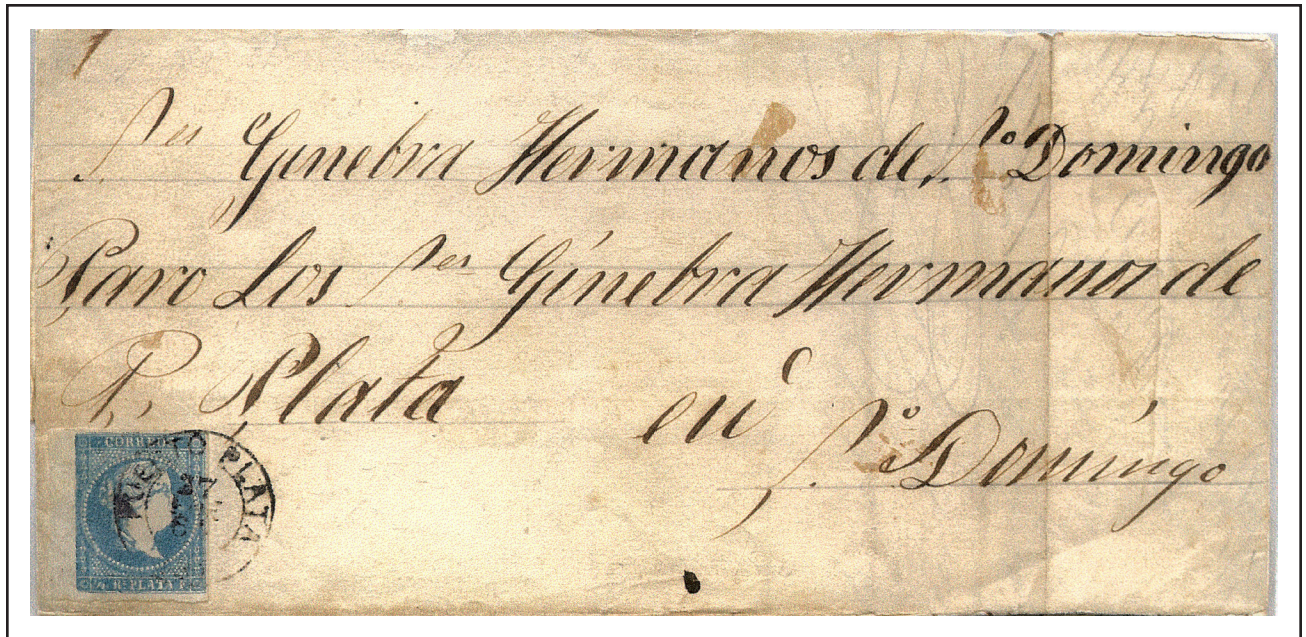 Sres Ginebra Hermanos de Sto Domingo
Para Los Sres Ginebra Hermanos de
P. Plata en Sto Domingo
CORREOS
R. PLATA F.
PUERTO PLATA